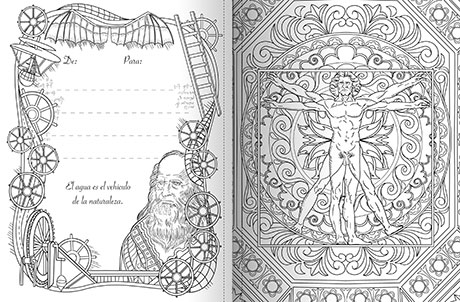 De: Para:
El agua es el vehículo
de la naturaleza.